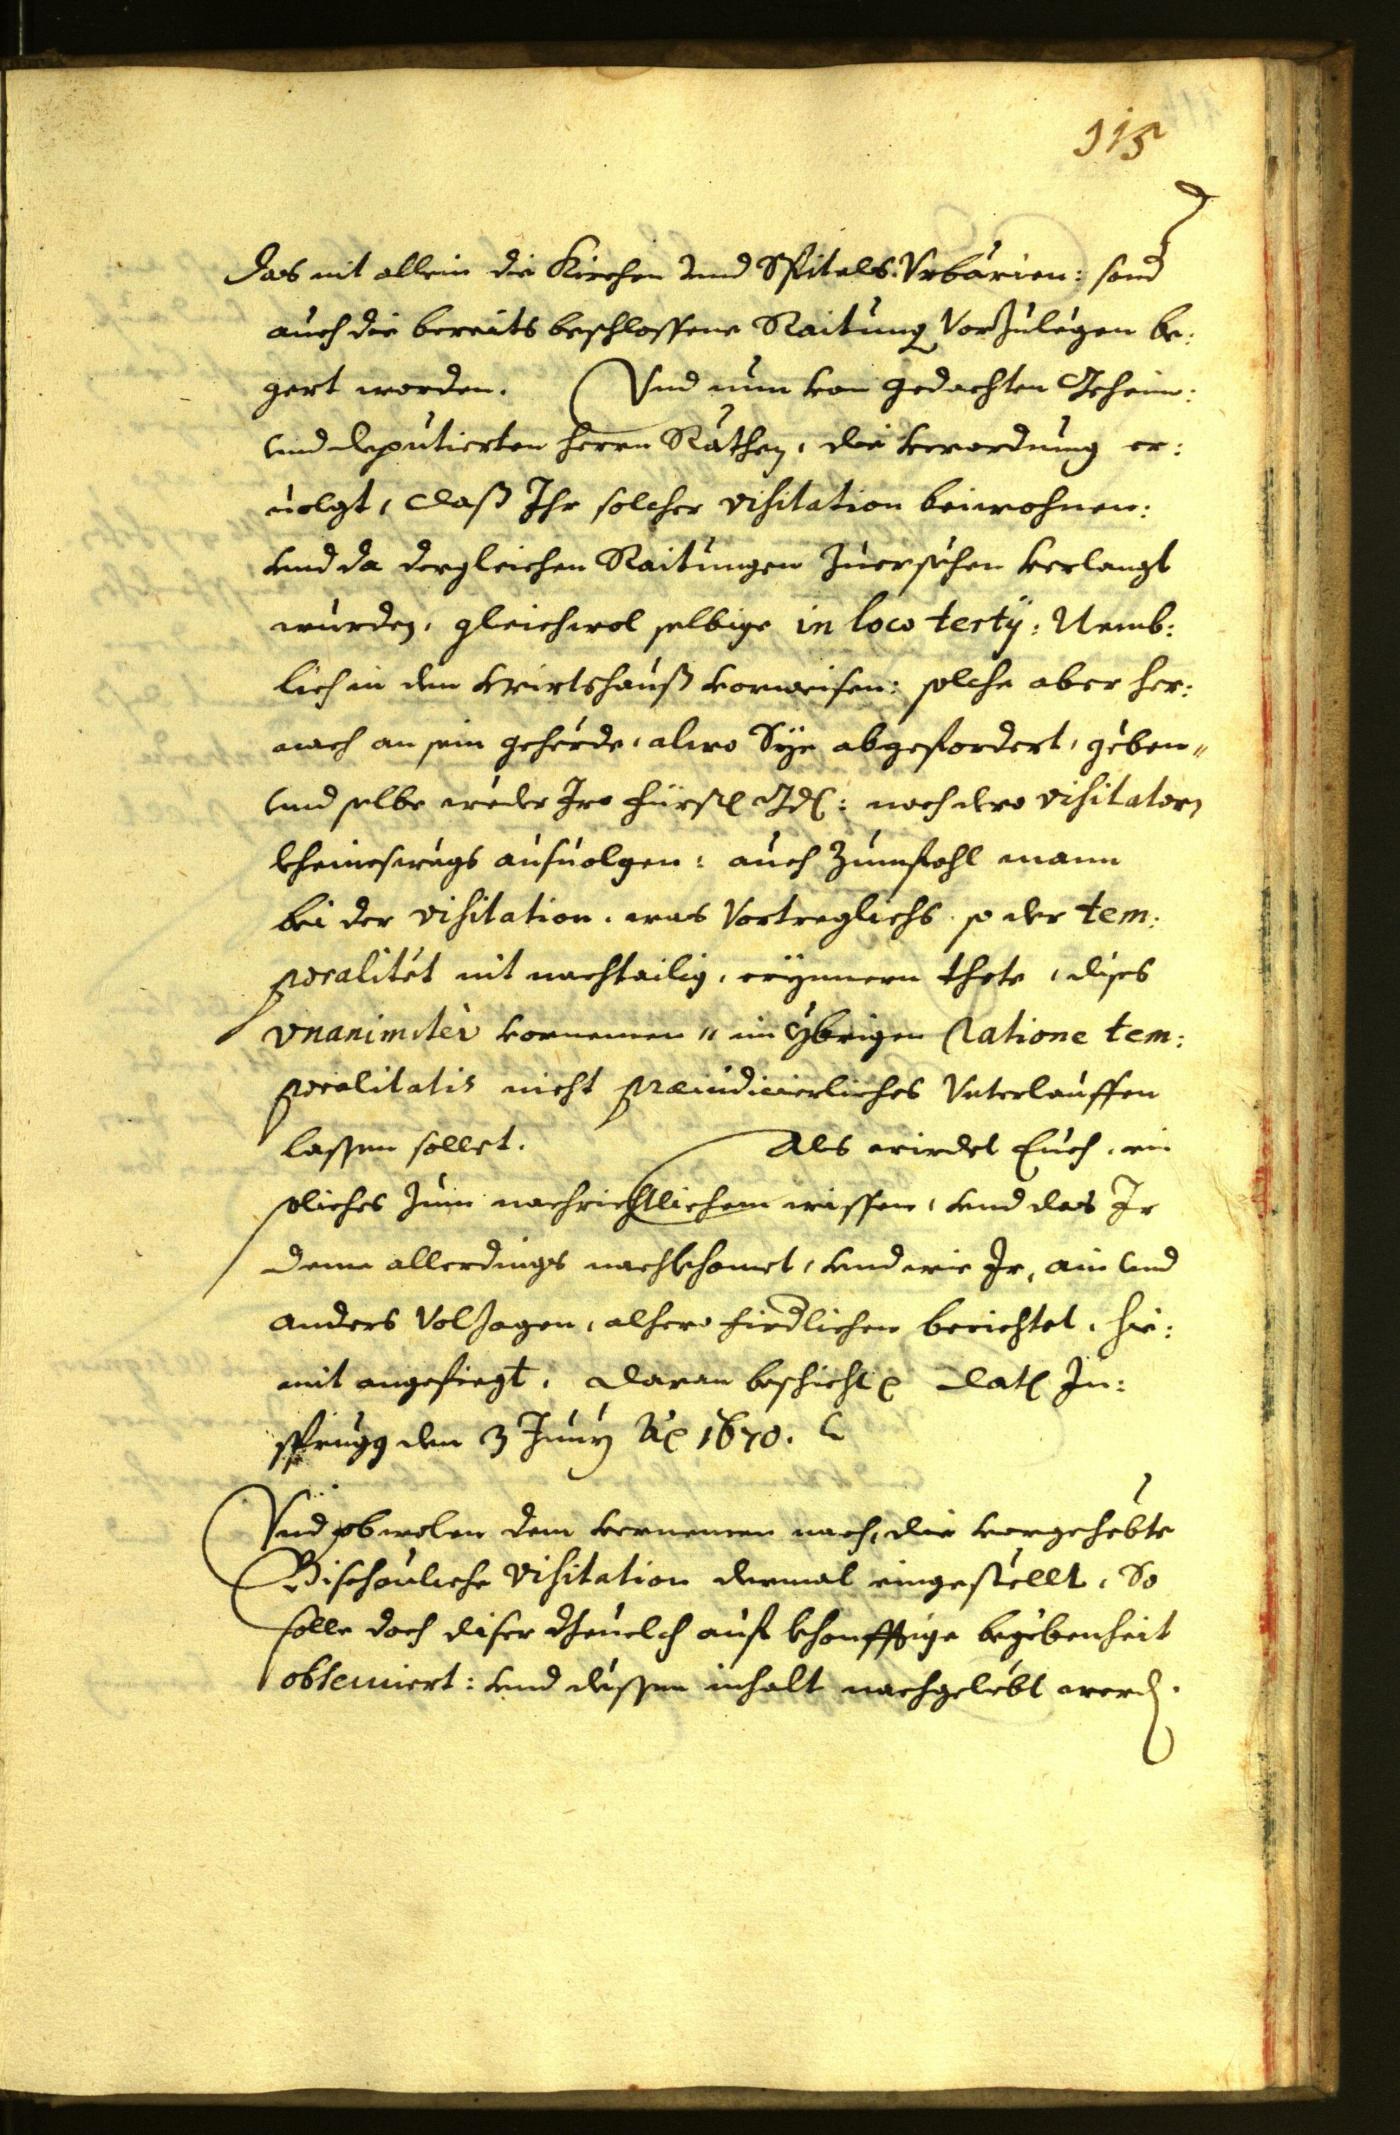 115
das nit allein die Kirchen und Spitals Urbarien: sond
auch die bereits beschlossene Raitung Vorzulegen be:
gert worden. Und nun von gedachten Gehaim:
und deputierten herrn Räthen, die verordnung er:
uolgt, daß Ihr solcher visitation beiwohnen:
und da dergleichen Raitungen zuersechen verlangt
wurden, gleichwol selbige in loco tertÿ: Nemb:
lich in dem Wirtshauß vorweisen: solche aber her:
nach an sein gehörde, alwo Sÿe abgefordert, geben„
und selbe weder Iro fürstl Gd: noch dero visitatorn
kheineswegs aufuolgen: auch zumfahl mann
bei der visitation, was Vortreglichs so der tem:
poralitét nit nachtailig, erÿnnern thete, dises
vnanimitèr vornemen „ im ÿbrigen ratione tem:
poralitatis nicht præiudicierliches Unterlauffen
lassen sollet. Als wirdet Euch, ein
soliches zum nachrichtlichem wissen, und das Ir
deme allerdings nachkhomet, und wie Ir, ain und
anders Volzogen, alhero fierdlichen berichtet, hie:
mit angefiegt, daran beschicht Datl In:
sprugg den 3 Junÿ A 1670.
Und obwolen dem vernemen nach, die vorgehebte
Bischöuliche Visitation dermal eingestellt, So
solle doch diser beuelch auf khonfftige begebenheit
obseruiert: und dessen inhalt nachgelebt werdn.